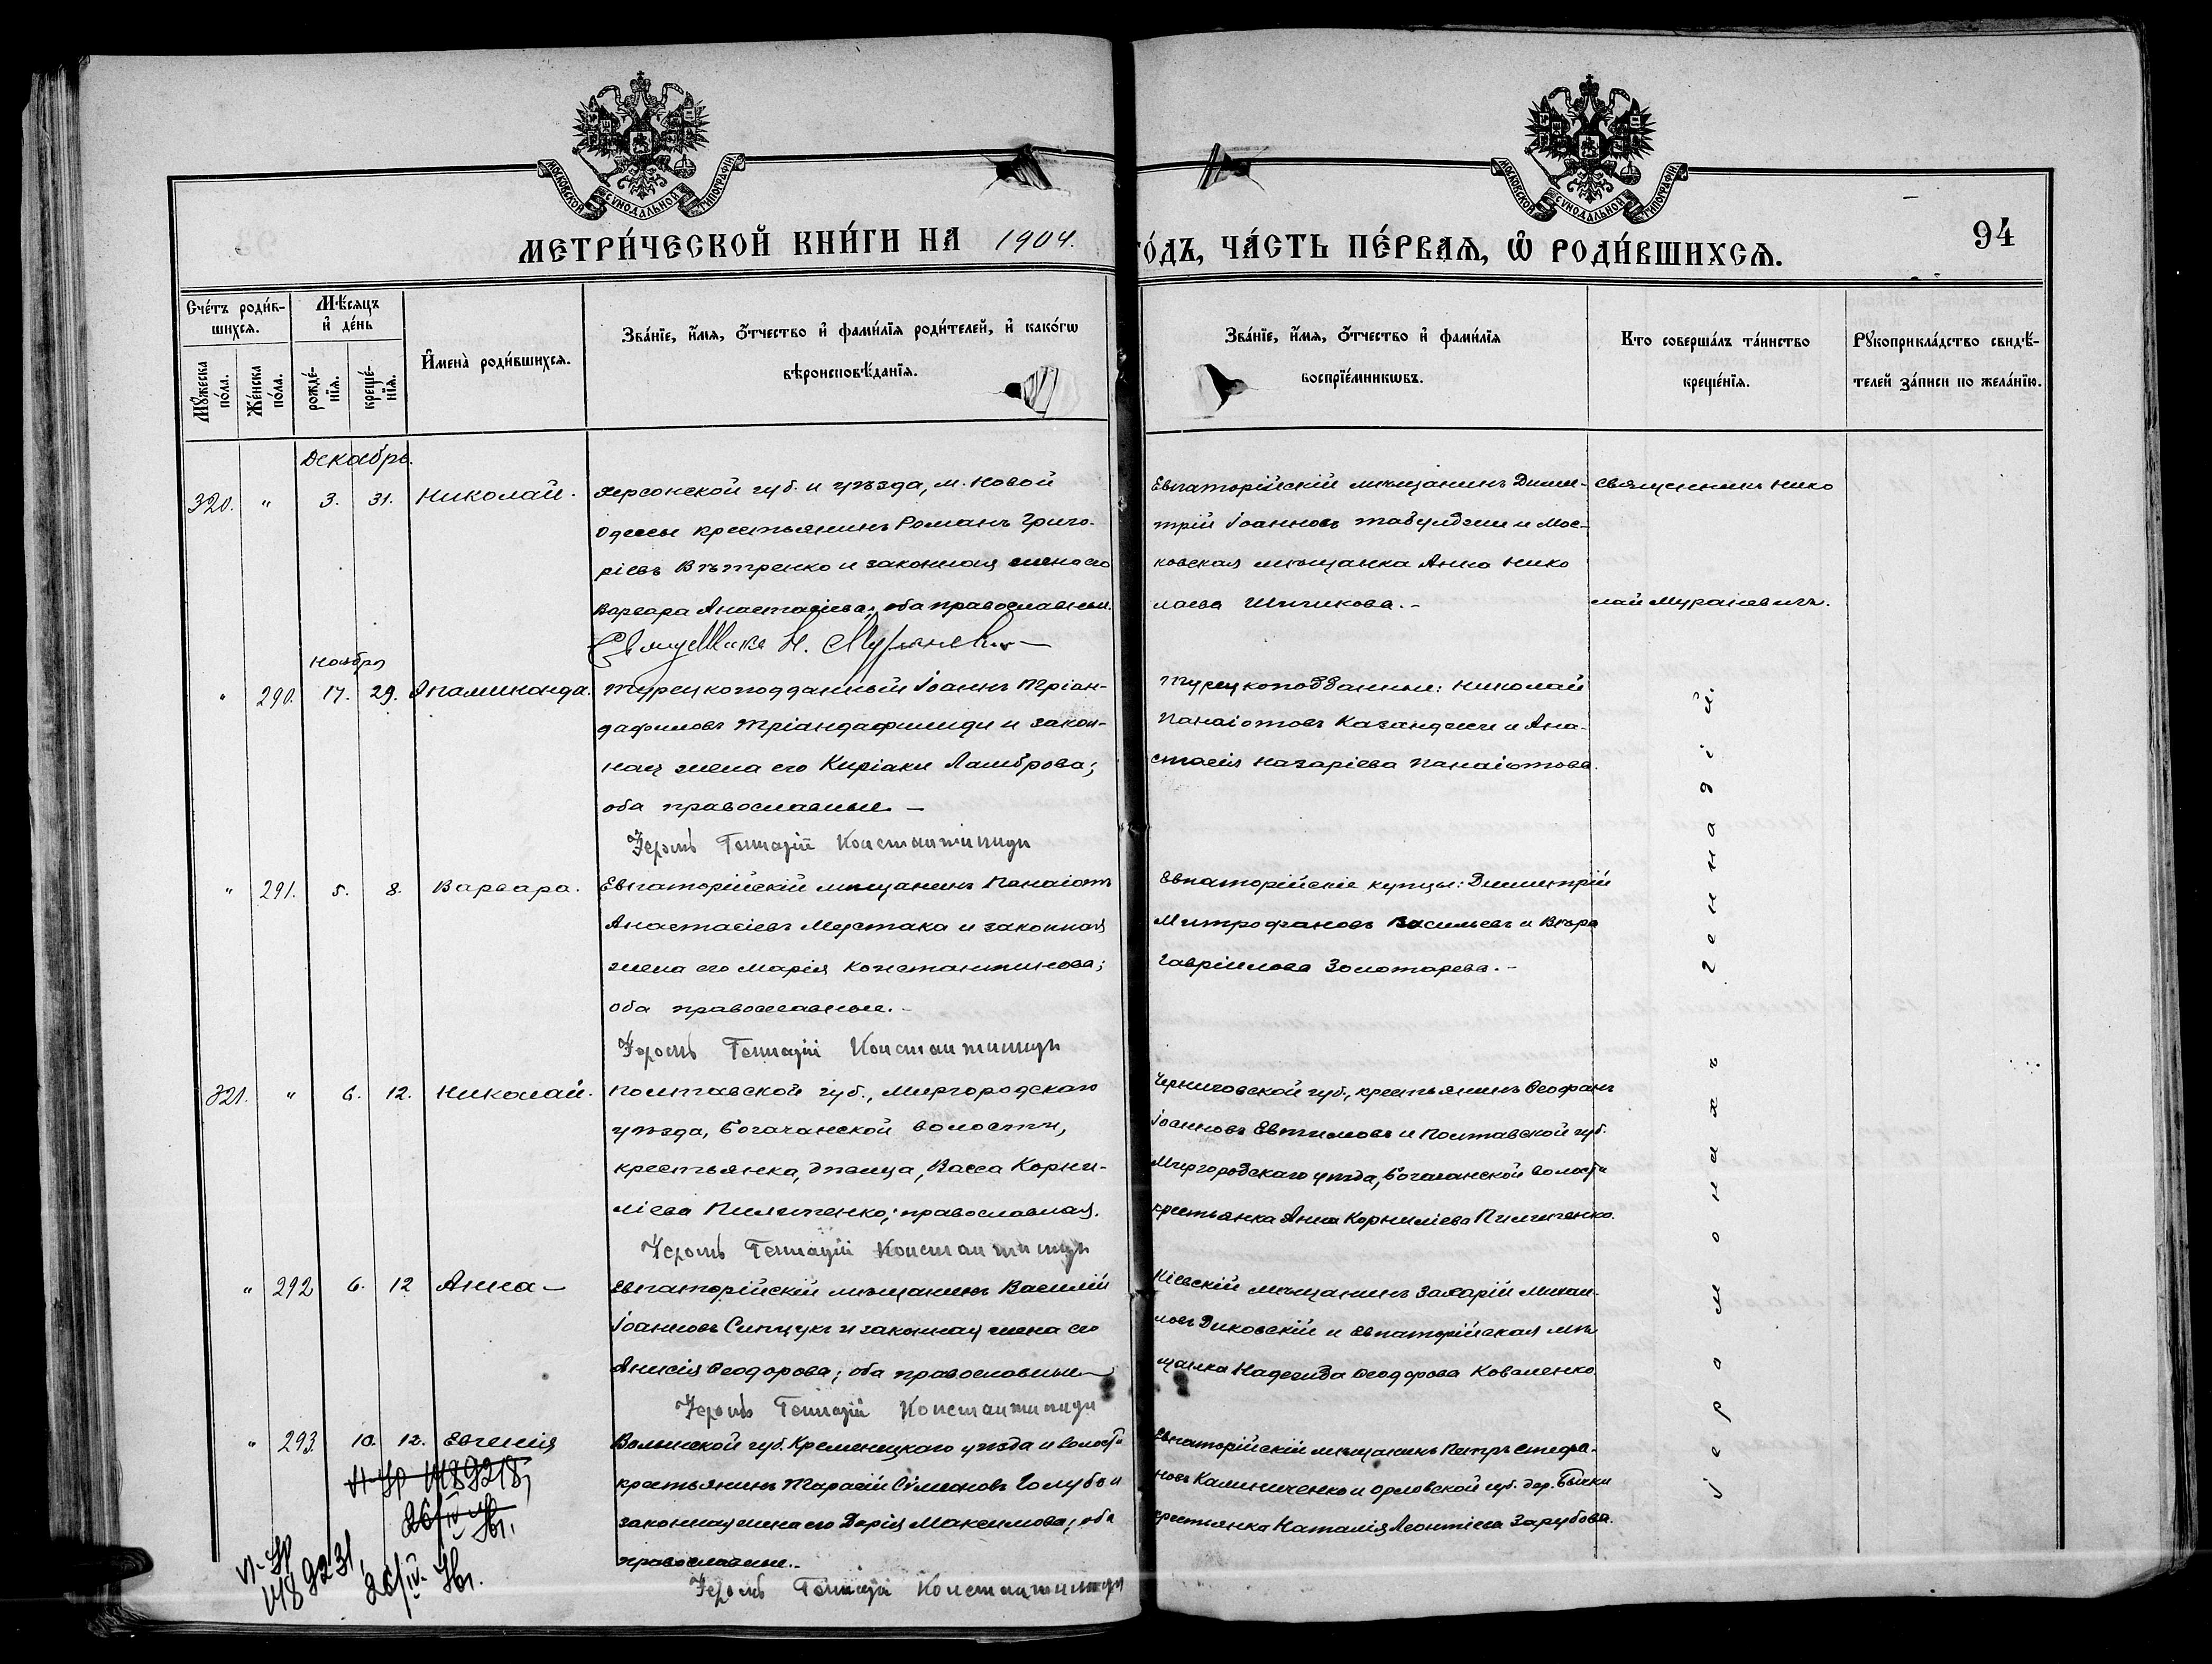 МОСКОВСКОЙ СѴНОДАЛЬНОЙ ТИПОГРАФІИ
МОСКОВСКОЙ СѴНОДАЛЬНОЙ ТИПОГРАФІИ
МЕТРИ́ЧЕСКОЙ КНИ́ГИ НА 1904.
ГО́ДЪ, ЧА́СТЬ ПЕ́РВАѦ, Ѡ҆ РОДИ́ВШИХСѦ.
94
Сче́тъ роди́в-
шихсѧ.
Мѣ́сѧцъ
и҆ де́нь
Мꙋ́жеска по́ла.
Же́нска по́ла.
рожде́-
нїѧ.
креще́-
нїѧ.
И҆мена̀ роди́вшихсѧ.
Зва́нїе, и҆́мѧ, ѻ҆́тчество и҆ фами́лїѧ роди́телей, и҆ како́гѡ
вѣроисповѣ́данїѧ.
Зва́нїе, и҆́мѧ, ѻ҆́тчество и҆ фами́лїѧ
воспрїе́мникѡвъ.
Кто соверша́лъ та́инство
креще́нїѧ.
Рꙋкоприкла́дство свидѣ́-
телей за́писи по жела́нїю.
Декабрь.
320. " 3. 31. Николай.
Херсонской губ. и уѣзда, м. Новой
Одессы крестьянинъ Романъ Григо-
ріевъ Вѣтренко и законная жена его
Варвара Анастасіева; оба православные.
Священникъ Н. Мураневичъ
Евпаторійскій мѣщанинъ Дими-
трій Іоанновъ Табулджи и Мос-
ковская мѣщанка Анна Нико
лаева Шишкова.-
Священникъ Нико
лай Мураневичъ.
Ноябрь
" 290. 17. 29. Эпаминонда.
Турецкоподданный Іоаннъ Тріан-
дафиловъ Тріандафилиди и закон-
ная жена его Киріаки Ламброва;
оба православные –
Іеромъ Геннадій Константиниди
Турецкоподданные: Николай
Панаіотовъ Казанджи и Ана-
стасія Назаріева Панаіотова.
" 291. 5. 8. Варвара.
Евпаторійскій мѣщанинъ Панаіотъ
Анастасіевъ Мустака и законная
жена его Марія Константинова;
оба православные.-
Іеромъ Геннадій Константиниди
Евпаторійскіе купцы: Димитрій
Митрофановъ Васильевъ и Вѣра
Гавріилова Золотарева.-
321. " 6. 12. Николай.
Полтавской губ., Миргородскаго
уѣзда, Богачанской волости,
крестьянка, дѣвица, Васса Корни-
ліева Пилипенко; православная.
Іеромъ Геннадій Константиниди
Черниговской губ., крестьянинъ Ѳеофанъ
Іоанновъ Евтимовъ и Полтавской губ.
Миргородскаго уѣзда, Богачанской волости
крестьянка Анна Корниліева Пилипенко.
" 292 6. 12 Анна –
Евпаторійскій мѣщанинъ Василій
Іоанновъ Сипчукъ и законная жена его
Анисія Ѳеодорова; оба православные –
Іеромъ Геннадій Константиниди
Кіевскій мѣщанинъ Захарій Михаи-
ловъ Диковскій и Евпаторійская мѣ
щанка Надежда Ѳеодорова Коваленко.
" 293. 10. 12. Евгенія
Волынской губ. Кременецкаго уѣзда и волости
крестьянинъ Тарасій Сѵмеоновъ Голубъ и
законная жена его Дарія Максимова; оба
православные.-
Іеромъ Геннадій Константиниди
Евпаторійскій мѣщанинъ Петръ Стефа-
новъ Калиниченко и Орловской губ. дер. Бычки
крестьянка Наталія Леонтіева Зарубова.
Іеромонахъ Геннадій.